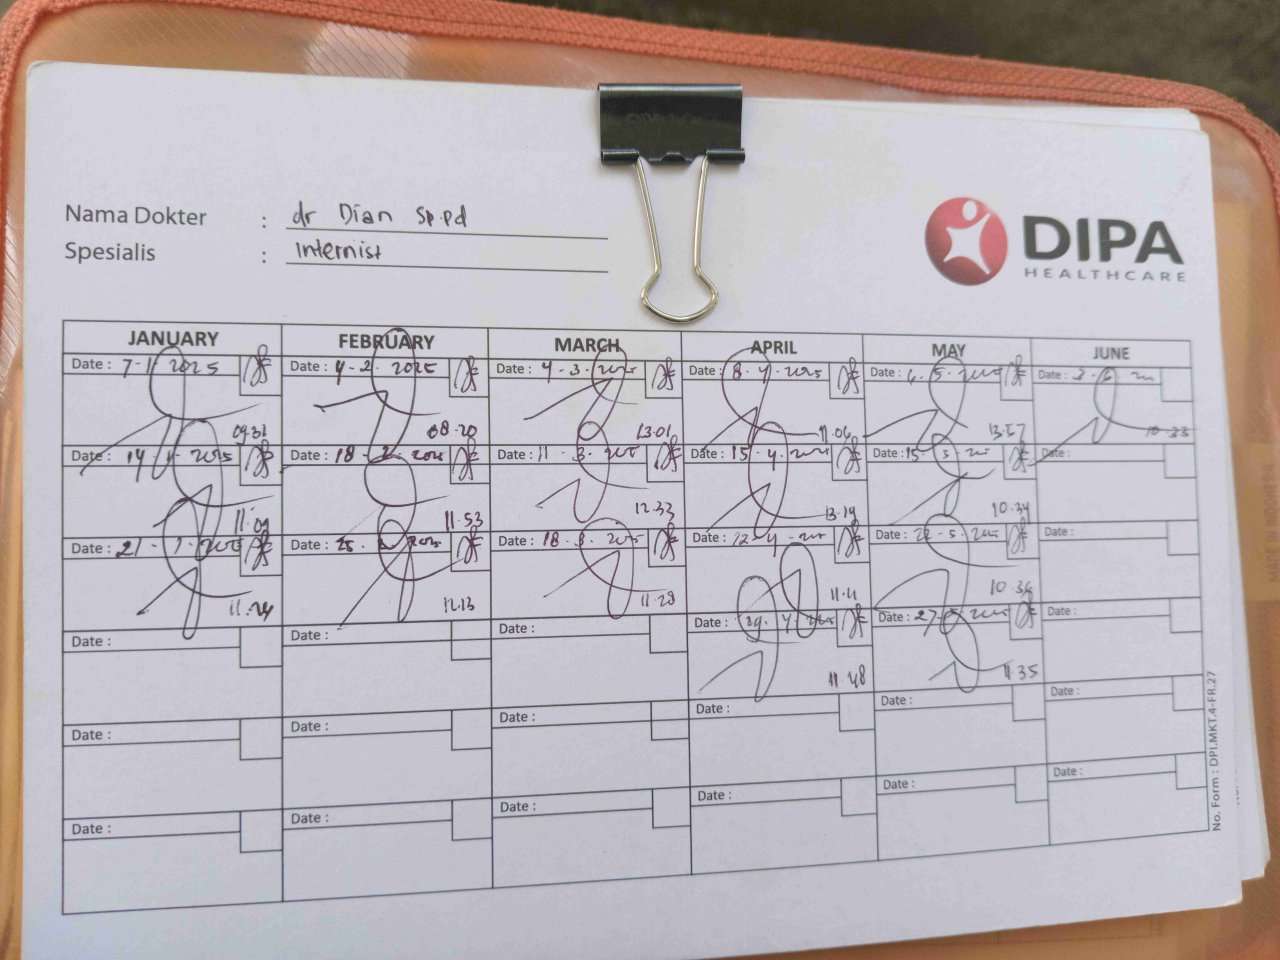 Nama Dokter : dr Dian Sp.pd
Spesialis : Internist
DIPA
HEALTHCARE
JANUARY FEBRUARY MARCH APRIL MAY JUNE
Date : 7-1 2025 Date : 4-2. 2025 Date : 4-3. 2025 Date : 8-4-2025 Date : 6.5. 2025 Date : 3-6
09.31 08.20 13.01 11.06 13.57 10.33
Date : 14 2025 Date : 18-2. 2025 Date : 11-3. Date : 15-4. Date : 15 Date :
11.09 11.53 12.33 13.19 10.34
Date : 21-1-2025 Date : 25. 2025 Date : 18-3. 2025 Date : 22-4- Date : 22-5. Date :
11.24 12.13 11.28 11.11 10.36
Date : Date : Date : Date : 29. 4. 2025 Date : 27-5 Date :
11.48 11.35
Date : Date : Date : Date : Date : Date :
Date : Date : Date : Date : Date : Date :
No. Form : DPI.MKT.4-FR.27
MADE IN INDONESIA